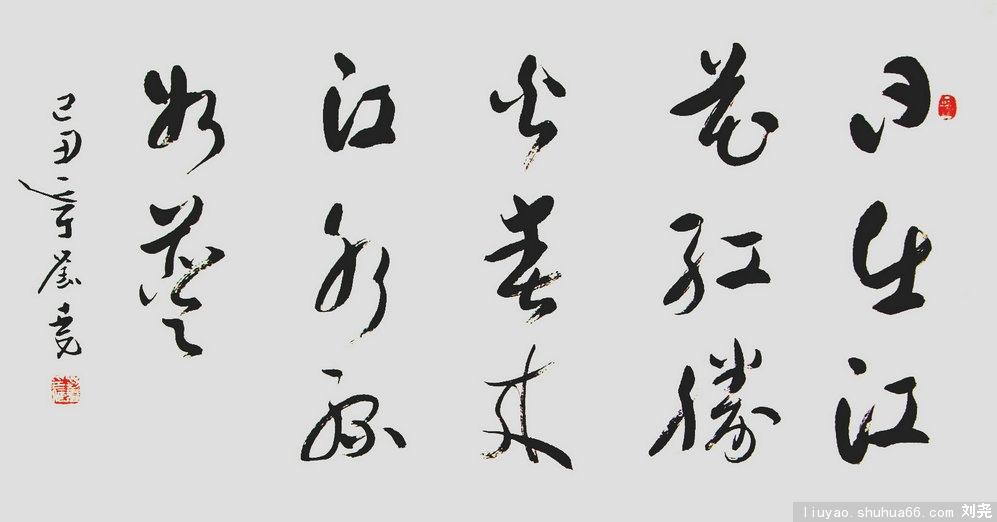 日出江
花红勝
火春来
江水绿
如蓝
己丑 刘尧
liuyao.shuhua66.com 刘尧